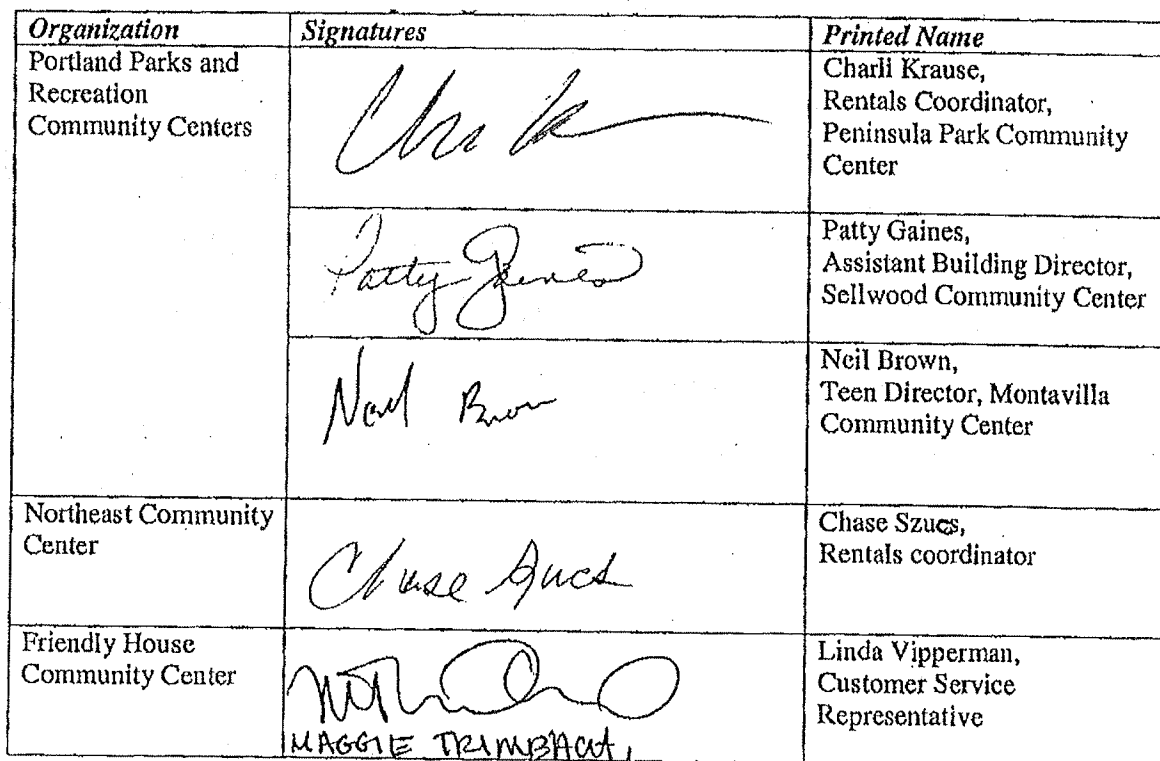 Organization Signatures Printed Name
Portland Parks and
Recreation
Community Centers
Charli Krause,
Rentals Coordinator,
Peninsula Park Community
Center
Patty Gaines
Patty Gaines,
Assistant Building Director,
Sellwood Community Center
Neil Brown
Neil Brown,
Teen Director, Montavilla
Community Center
Northeast Community
Center
Chase Szucs
Chase Szucs,
Rentals coordinator
Friendly House
Community Center
MAGGIE
Linda Vipperman,
Customer Service
Representative